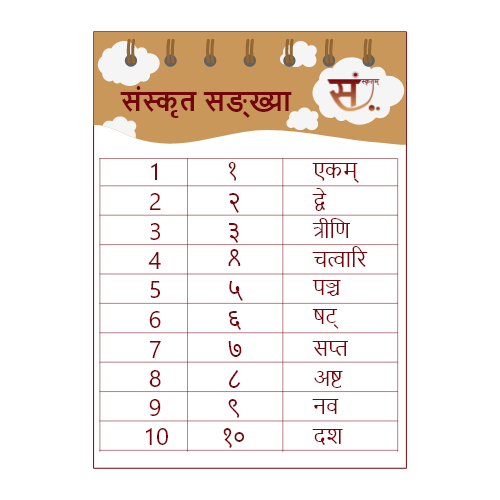 संस्कृत सङ्ख्या
संस्कृतम्
1 १ एकम्
2 २ द्वे
3 ३ त्रीणि
4 ४ चत्वारि
5 ५ पञ्च
6 ६ षट्
7 ७ सप्त
8 ८ अष्ट
9 ९ नव
10 १० दश